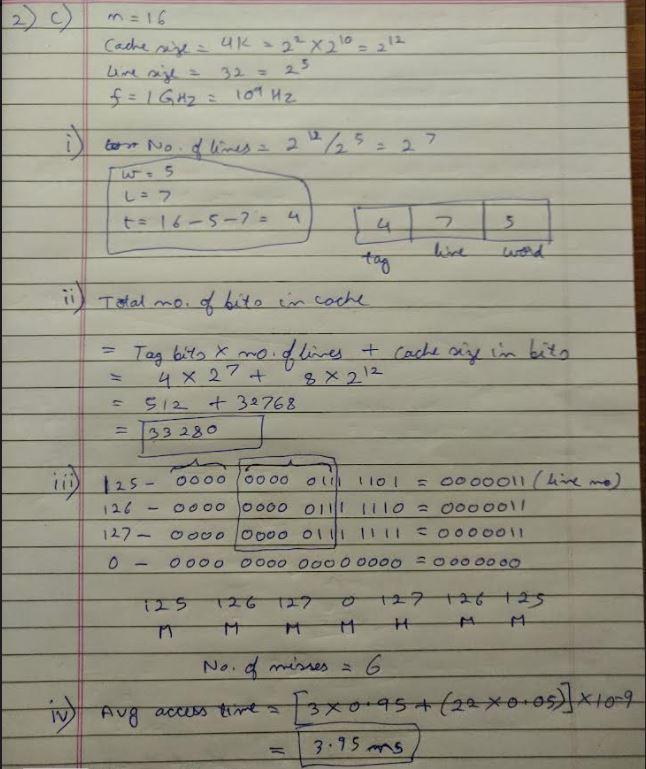 2) c) n = 16
Cache size = 4K = 2² × 2¹⁰ = 2¹²
Line size = 32 = 2⁵
f = 1 GHz = 10⁹ Hz
i) No. of lines = 2¹²/2⁵ = 2⁷
w = 5
L = 7
t = 16 - 5 - 7 = 4
4 7 5
tag line word
ii) Total no. of bits in cache
= Tag bits × no. of lines + Cache size in bits
= 4 × 2⁷ + 8 × 2¹²
= 512 + 32768
= 33280
iii) 125 - 0000 0000 0111 1101 = 0000011 (Line no)
126 - 0000 0000 0111 1110 = 0000011
127 - 0000 0000 0111 1111 = 0000011
0 - 0000 0000 0000 0000 = 0000000
125 126 127 0 127 126 125
M M M M H M M
No. of misses = 6
iv) Avg access time = [3 × 0.95 + (22 × 0.05)] × 10-9
= 3.95 ms